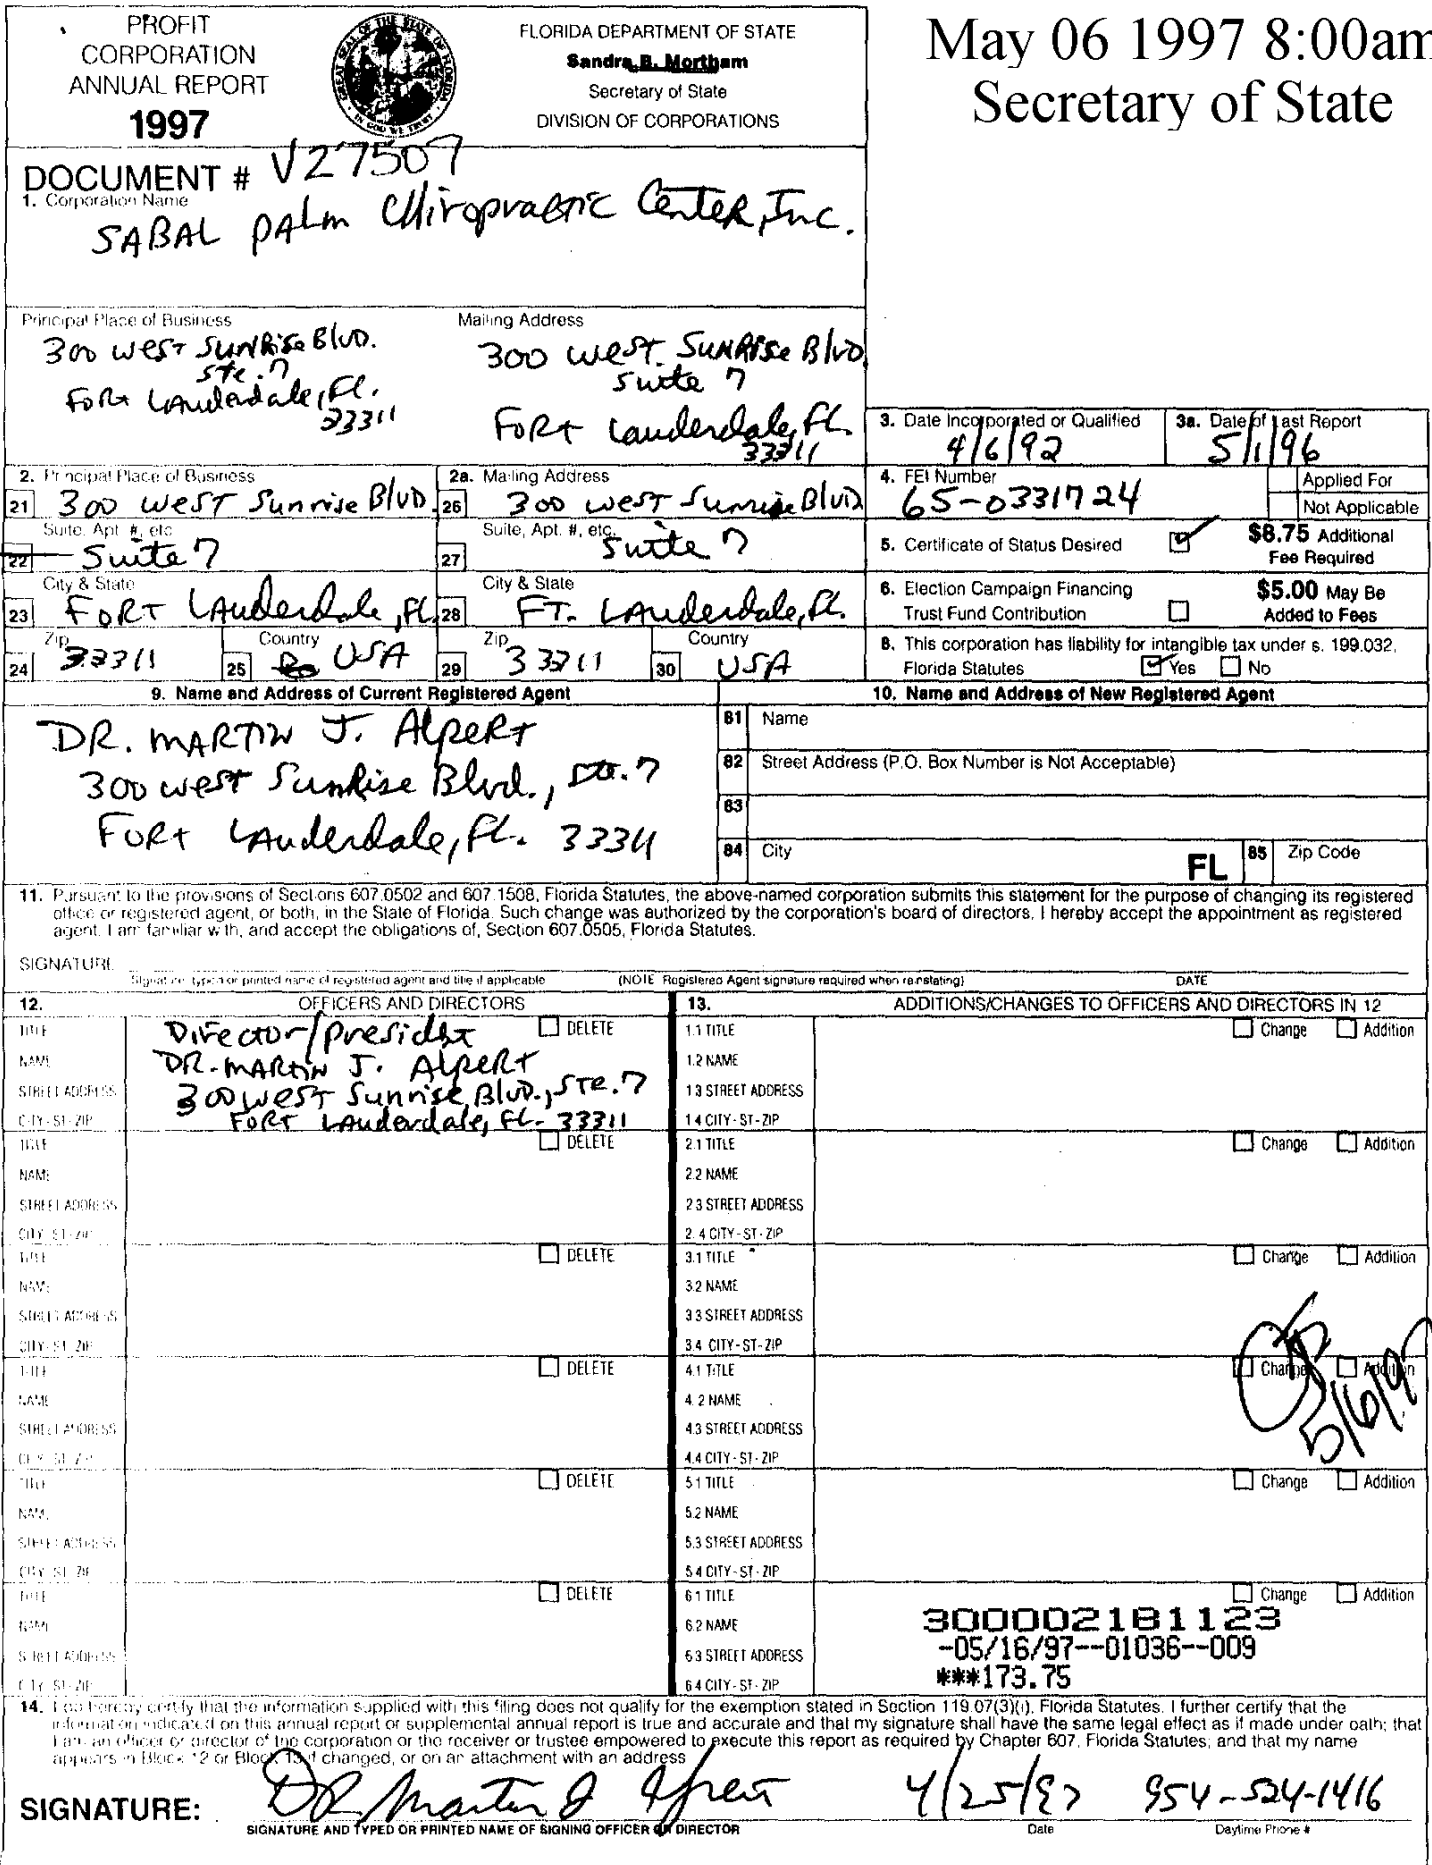 PROFIT
CORPORATION
ANNUAL REPORT
1997
FLORIDA DEPARTMENT OF STATE
Sandra B. Mortham
Secretary of State
DIVISION OF CORPORATIONS
May 06 1997 8:00am
Secretary of State
DOCUMENT # V27507
1. Corporation Name
SABAL PALM Chiropractic Center, Inc.
Principal Place of Business
300 West Sunrise Blvd.
Ste. 7
Fort Lauderdale, Fl.
33311
Mailing Address
300 West Sunrise Blvd
Suite 7
Fort Lauderdale, FL.
33311
3. Date Incorporated or Qualified
4/6/92
3a. Date of Last Report
5/1/96
2. Principal Place of Business
21 300 West Sunrise Blvd.
2a. Mailing Address
26 300 West Sunrise Blvd
4. FEI Number
65-0331724
Applied For
Not Applicable
Suite, Apt. #, etc.
22 Suite 7
Suite, Apt. #, etc.
27 Suite 7
5. Certificate of Status Desired
$8.75 Additional
Fee Required
City & State
23 Fort Lauderdale, FL.
City & State
28 FT. Lauderdale, FL.
6. Election Campaign Financing
Trust Fund Contribution
$5.00 May Be
Added to Fees
Zip
24 33311
Country
25 USA
Zip
29 33311
Country
30 USA
8. This corporation has liability for intangible tax under s. 199.032,
Florida Statutes Yes No
9. Name and Address of Current Registered Agent
DR. MARTIN J. Alpert
300 West Sunrise Blvd., Ste. 7
Fort Lauderdale, FL. 33311
10. Name and Address of New Registered Agent
81 Name
82 Street Address (P.O. Box Number is Not Acceptable)
83
84 City
FL
85 Zip Code
11. Pursuant to the provisions of Sections 607.0502 and 607.1508, Florida Statutes, the above-named corporation submits this statement for the purpose of changing its registered
office or registered agent, or both, in the State of Florida. Such change was authorized by the corporation's board of directors. I hereby accept the appointment as registered
agent. I am familiar with, and accept the obligations of, Section 607.0505, Florida Statutes.
SIGNATURE
Signature, typed or printed name of registered agent and title if applicable
(NOTE Registered Agent signature required when reinstating)
DATE
12. OFFICERS AND DIRECTORS
13. ADDITIONS/CHANGES TO OFFICERS AND DIRECTORS IN 12
TITLE Director/President DELETE
NAME DR. MARTIN J. Alpert
STREET ADDRESS 300 West Sunrise Blvd., Ste. 7
CITY-ST-ZIP Fort Lauderdale, FL. 33311
1.1 TITLE Change Addition
1.2 NAME
1.3 STREET ADDRESS
1.4 CITY-ST-ZIP
TITLE DELETE
NAME
STREET ADDRESS
CITY-ST-ZIP
2.1 TITLE Change Addition
2.2 NAME
2.3 STREET ADDRESS
2.4 CITY-ST-ZIP
TITLE DELETE
NAME
STREET ADDRESS
CITY-ST-ZIP
3.1 TITLE Change Addition
3.2 NAME
3.3 STREET ADDRESS
3.4 CITY-ST-ZIP
TITLE DELETE
NAME
STREET ADDRESS
CITY-ST-ZIP
4.1 TITLE Change Addition
4.2 NAME
4.3 STREET ADDRESS
4.4 CITY-ST-ZIP
5/6/97
TITLE DELETE
NAME
STREET ADDRESS
CITY-ST-ZIP
5.1 TITLE Change Addition
5.2 NAME
5.3 STREET ADDRESS
5.4 CITY-ST-ZIP
TITLE DELETE
NAME
STREET ADDRESS
CITY-ST-ZIP
6.1 TITLE Change Addition
6.2 NAME
6.3 STREET ADDRESS
6.4 CITY-ST-ZIP
300002181123
-05/16/97--01036--009
***173.75
14. I do hereby certify that the information supplied with this filing does not qualify for the exemption stated in Section 119.07(3)(i), Florida Statutes. I further certify that the
information indicated on this annual report or supplemental annual report is true and accurate and that my signature shall have the same legal effect as if made under oath; that
I am an officer or director of the corporation or the receiver or trustee empowered to execute this report as required by Chapter 607, Florida Statutes; and that my name
appears in Block 12 or Block 13 if changed, or on an attachment with an address
SIGNATURE: DR. Martin J Alpert 4/25/97 954-524-1416
SIGNATURE AND TYPED OR PRINTED NAME OF SIGNING OFFICER OR DIRECTOR
Date
Daytime Phone #